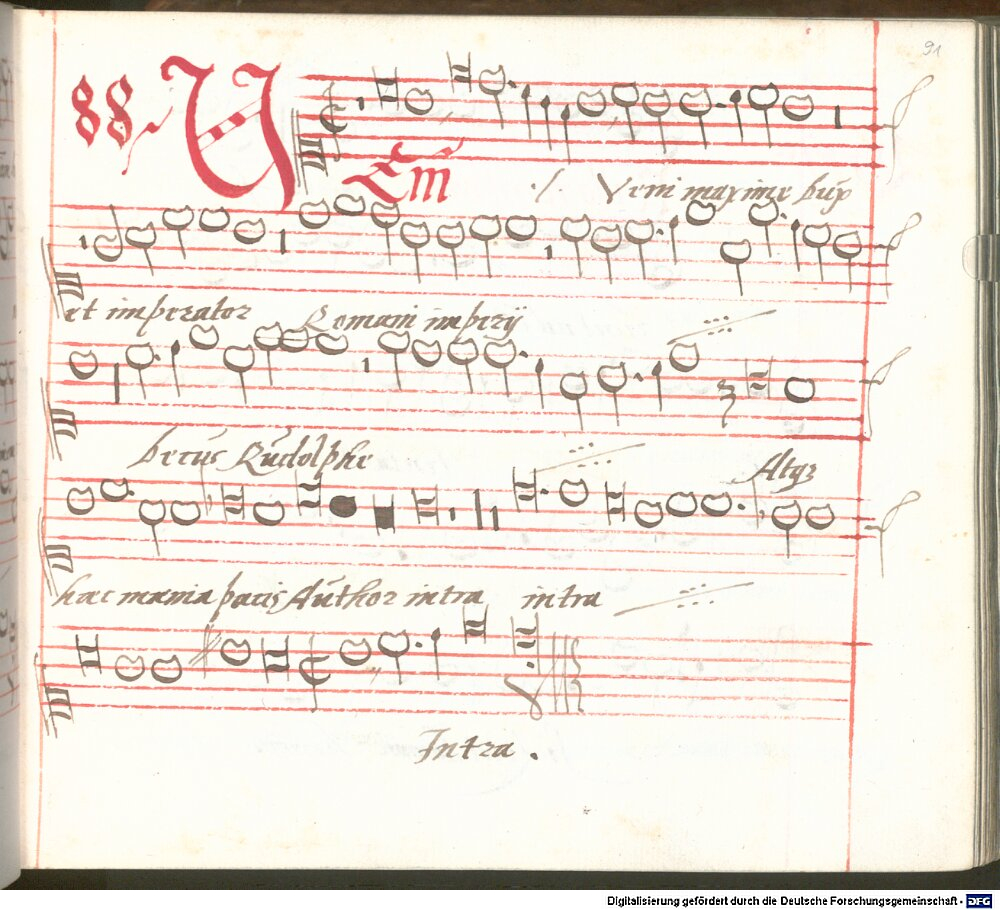 91
88. VEni ./. Veni maxime dux
et imperator Romani imperij
decus Rudolphe Atqz
hac mænia pacis Author intra intra
Intra.
Digitalisierung gefördert durch die Deutsche Forschungsgemeinschaft - DFG